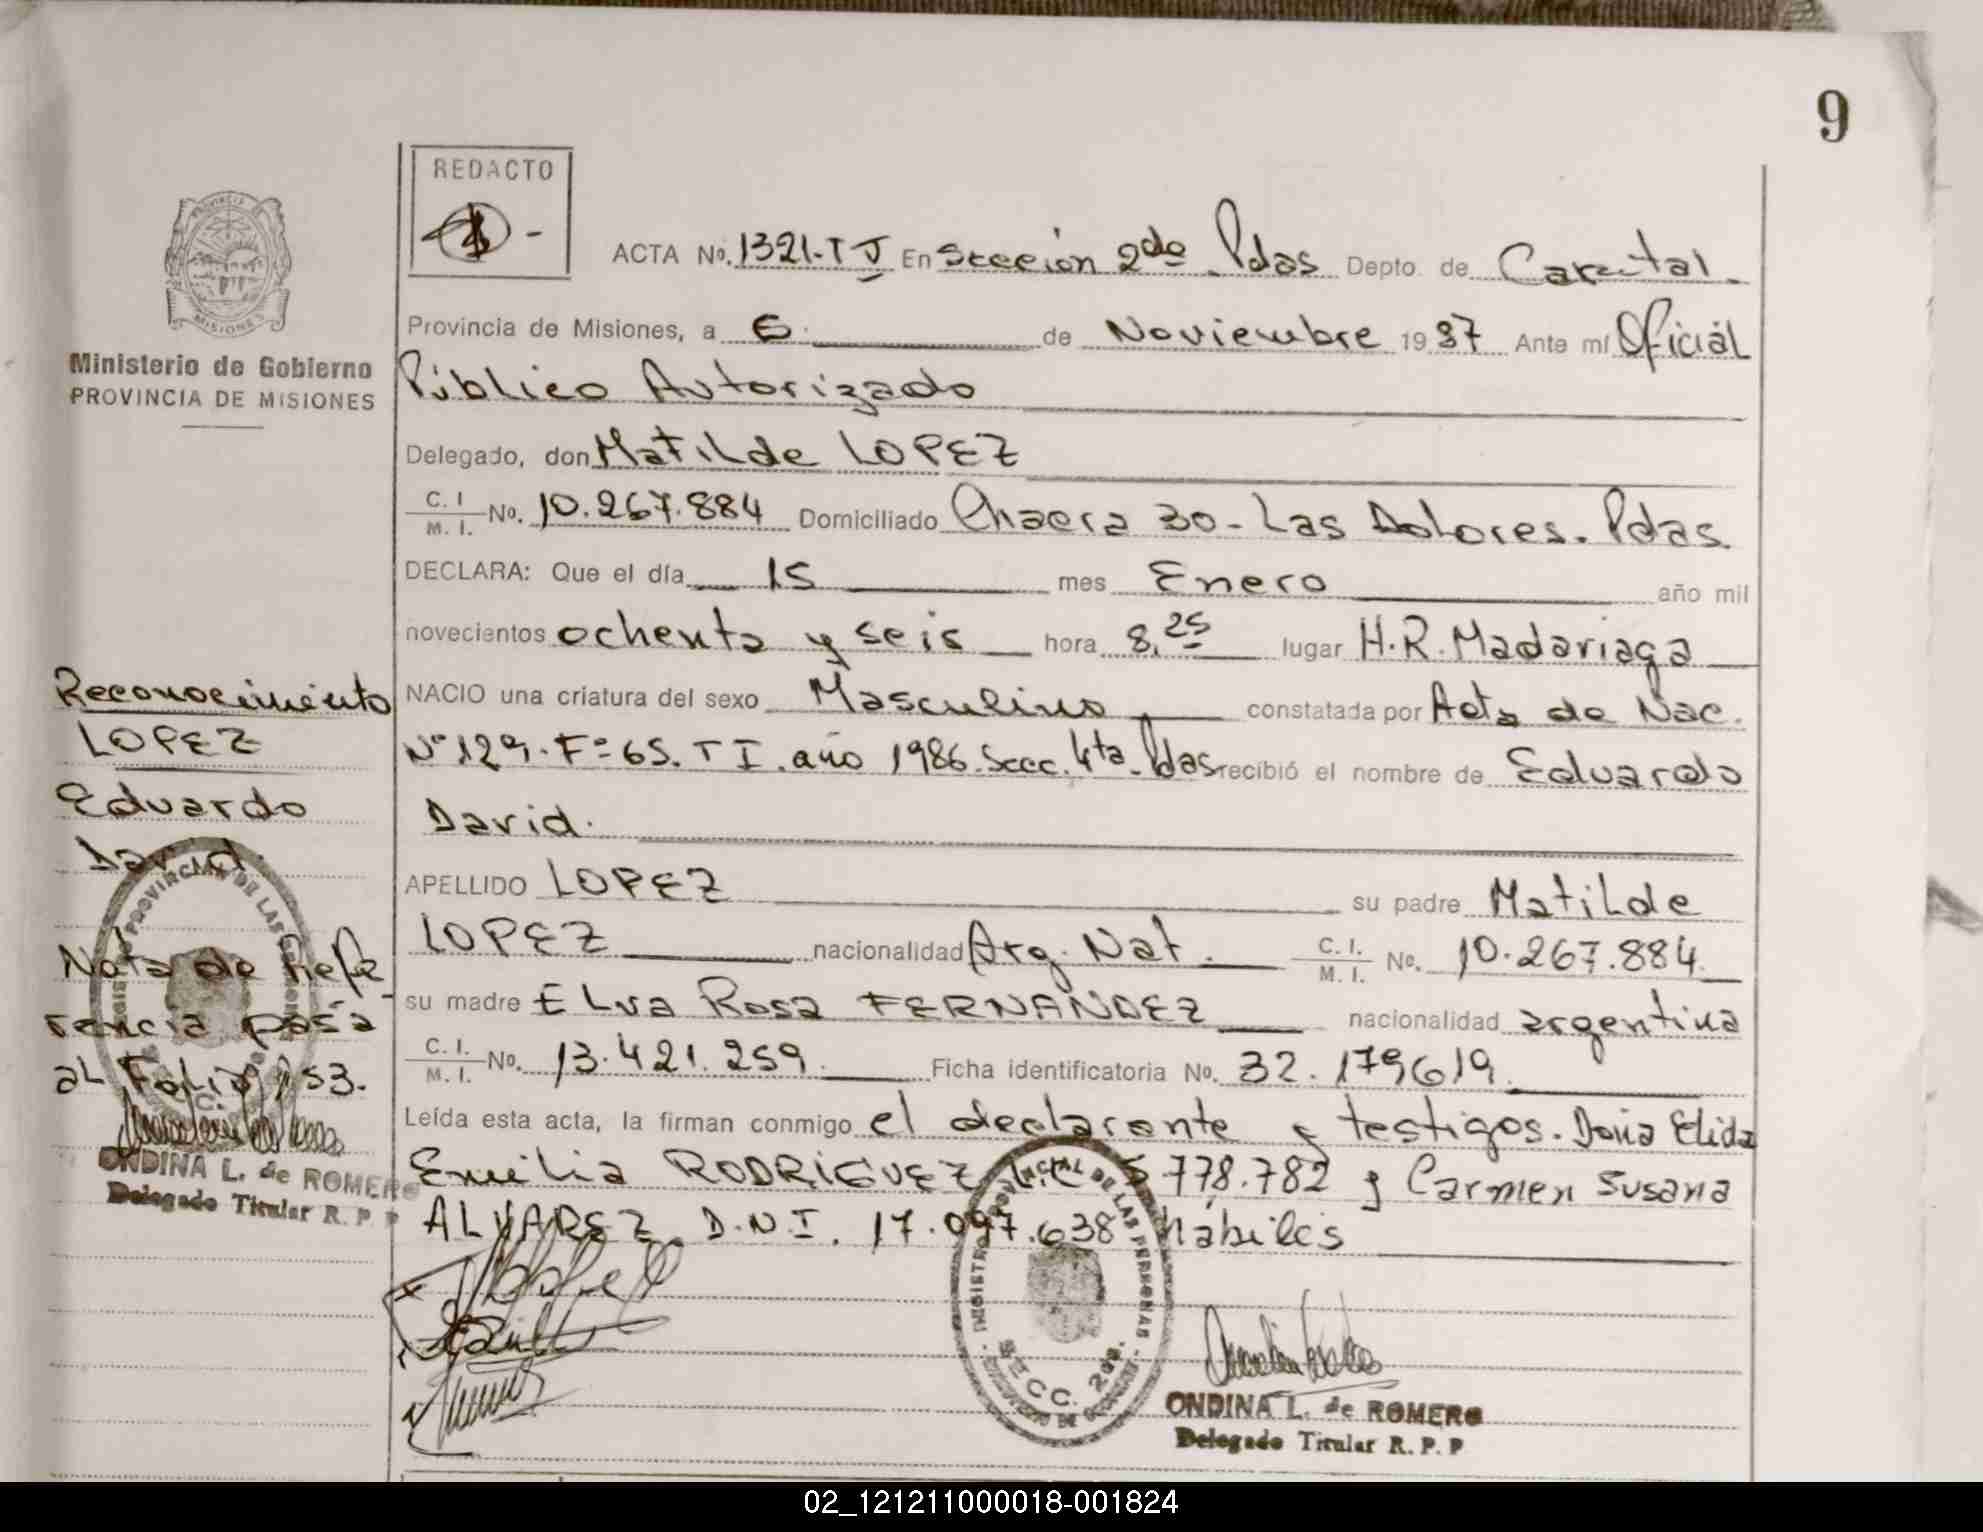 9
REDACTO
ACTA No. 1321-T J En Sección 2da Pdas Depto. de Capital
Provincia de Misiones, a 6 de Noviembre 1987 Ante mi Oficial
Público Autorizado
Delegado, don Matilde LOPEZ
C. I. / M. I. No. 10.267.884 Domiciliado Chacra 30-Las Dolores. Pdas.
DECLARA: Que el día 15 mes Enero año mil
novecientos ochenta y seis hora 8,25 lugar H.R. Madariaga
NACIO una criatura del sexo Masculino constatada por Acta de Nac.
Nº 129. Fº 65. T I. año 1986. Secc. 4ta. Pdas recibió el nombre de Eduardo
David.
APELLIDO LOPEZ su padre Matilde
LOPEZ nacionalidad Arg. Nat. C. I. / M. I. No. 10.267.884
su madre Elva Rosa FERNANDEZ nacionalidad argentina
C. I. / M. I. No. 13.421.259 Ficha identificatoria No. 32.179619
Leída esta acta, la firman conmigo el declarante y testigos. Doña Elida
Emilia RODRIGUEZ L.C. 5.778.782 y Carmen Susana
ALVAREZ D.N.I. 17.097.638 hábiles
PROVINCIA DE
MISIONES
Ministerio de Gobierno
PROVINCIA DE MISIONES
Reconocimiento
LOPEZ
Eduardo
David.
Nota de Refe
rencia pasa
al Folio 153.
ONDINA L. de ROMERO
Delegado Titular R. P. P
REGISTRO PROVINCIAL DE LAS PERSONAS
SECC. 2da.
ONDINA L. de ROMERO
Delegado Titular R. P. P
02_121211000018-001824